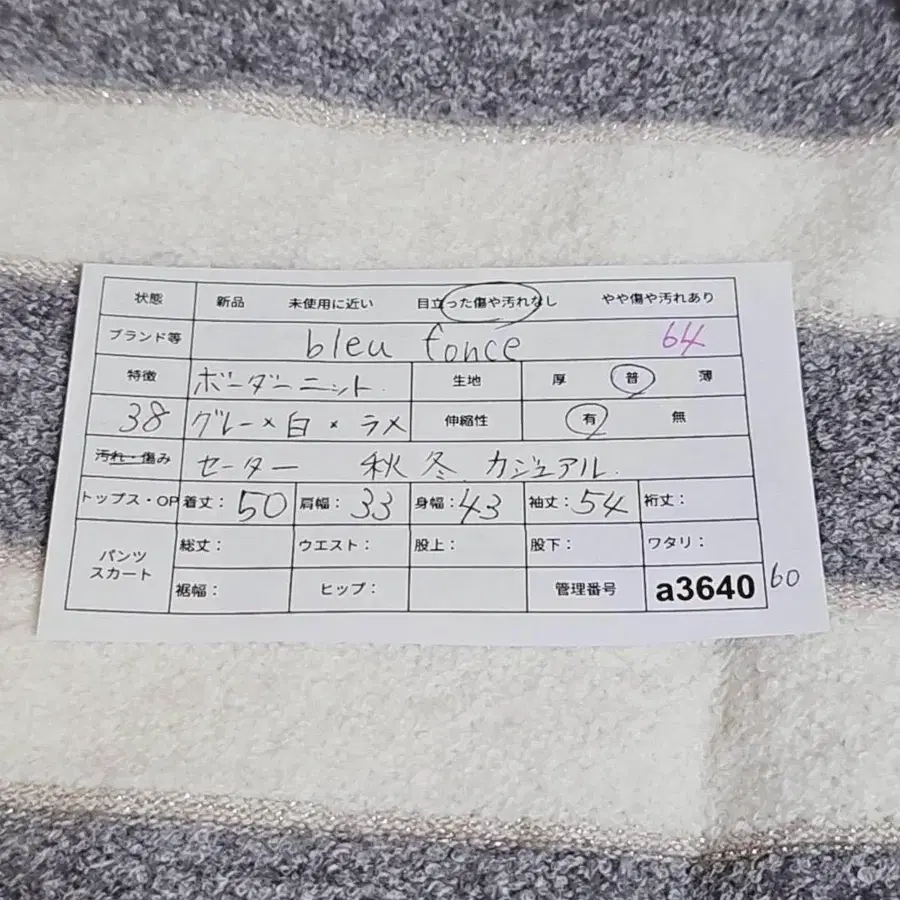 状態 新品 未使用に近い 目立った傷や汚れなし やや傷や汚れあり
ブランド等 bleu fonce 64
特徴 ボーダーニット 生地 厚 普 薄
38 グレー×白×ラメ 伸縮性 有 無
汚れ・傷み セーター 秋冬 カジュアル
トップス・OP 着丈: 50 肩幅: 33 身幅: 43 袖丈: 54 裄丈:
パンツ スカート 総丈: ウエスト: 股上: 股下: ワタリ:
裾幅: ヒップ: 管理番号 a3640 60